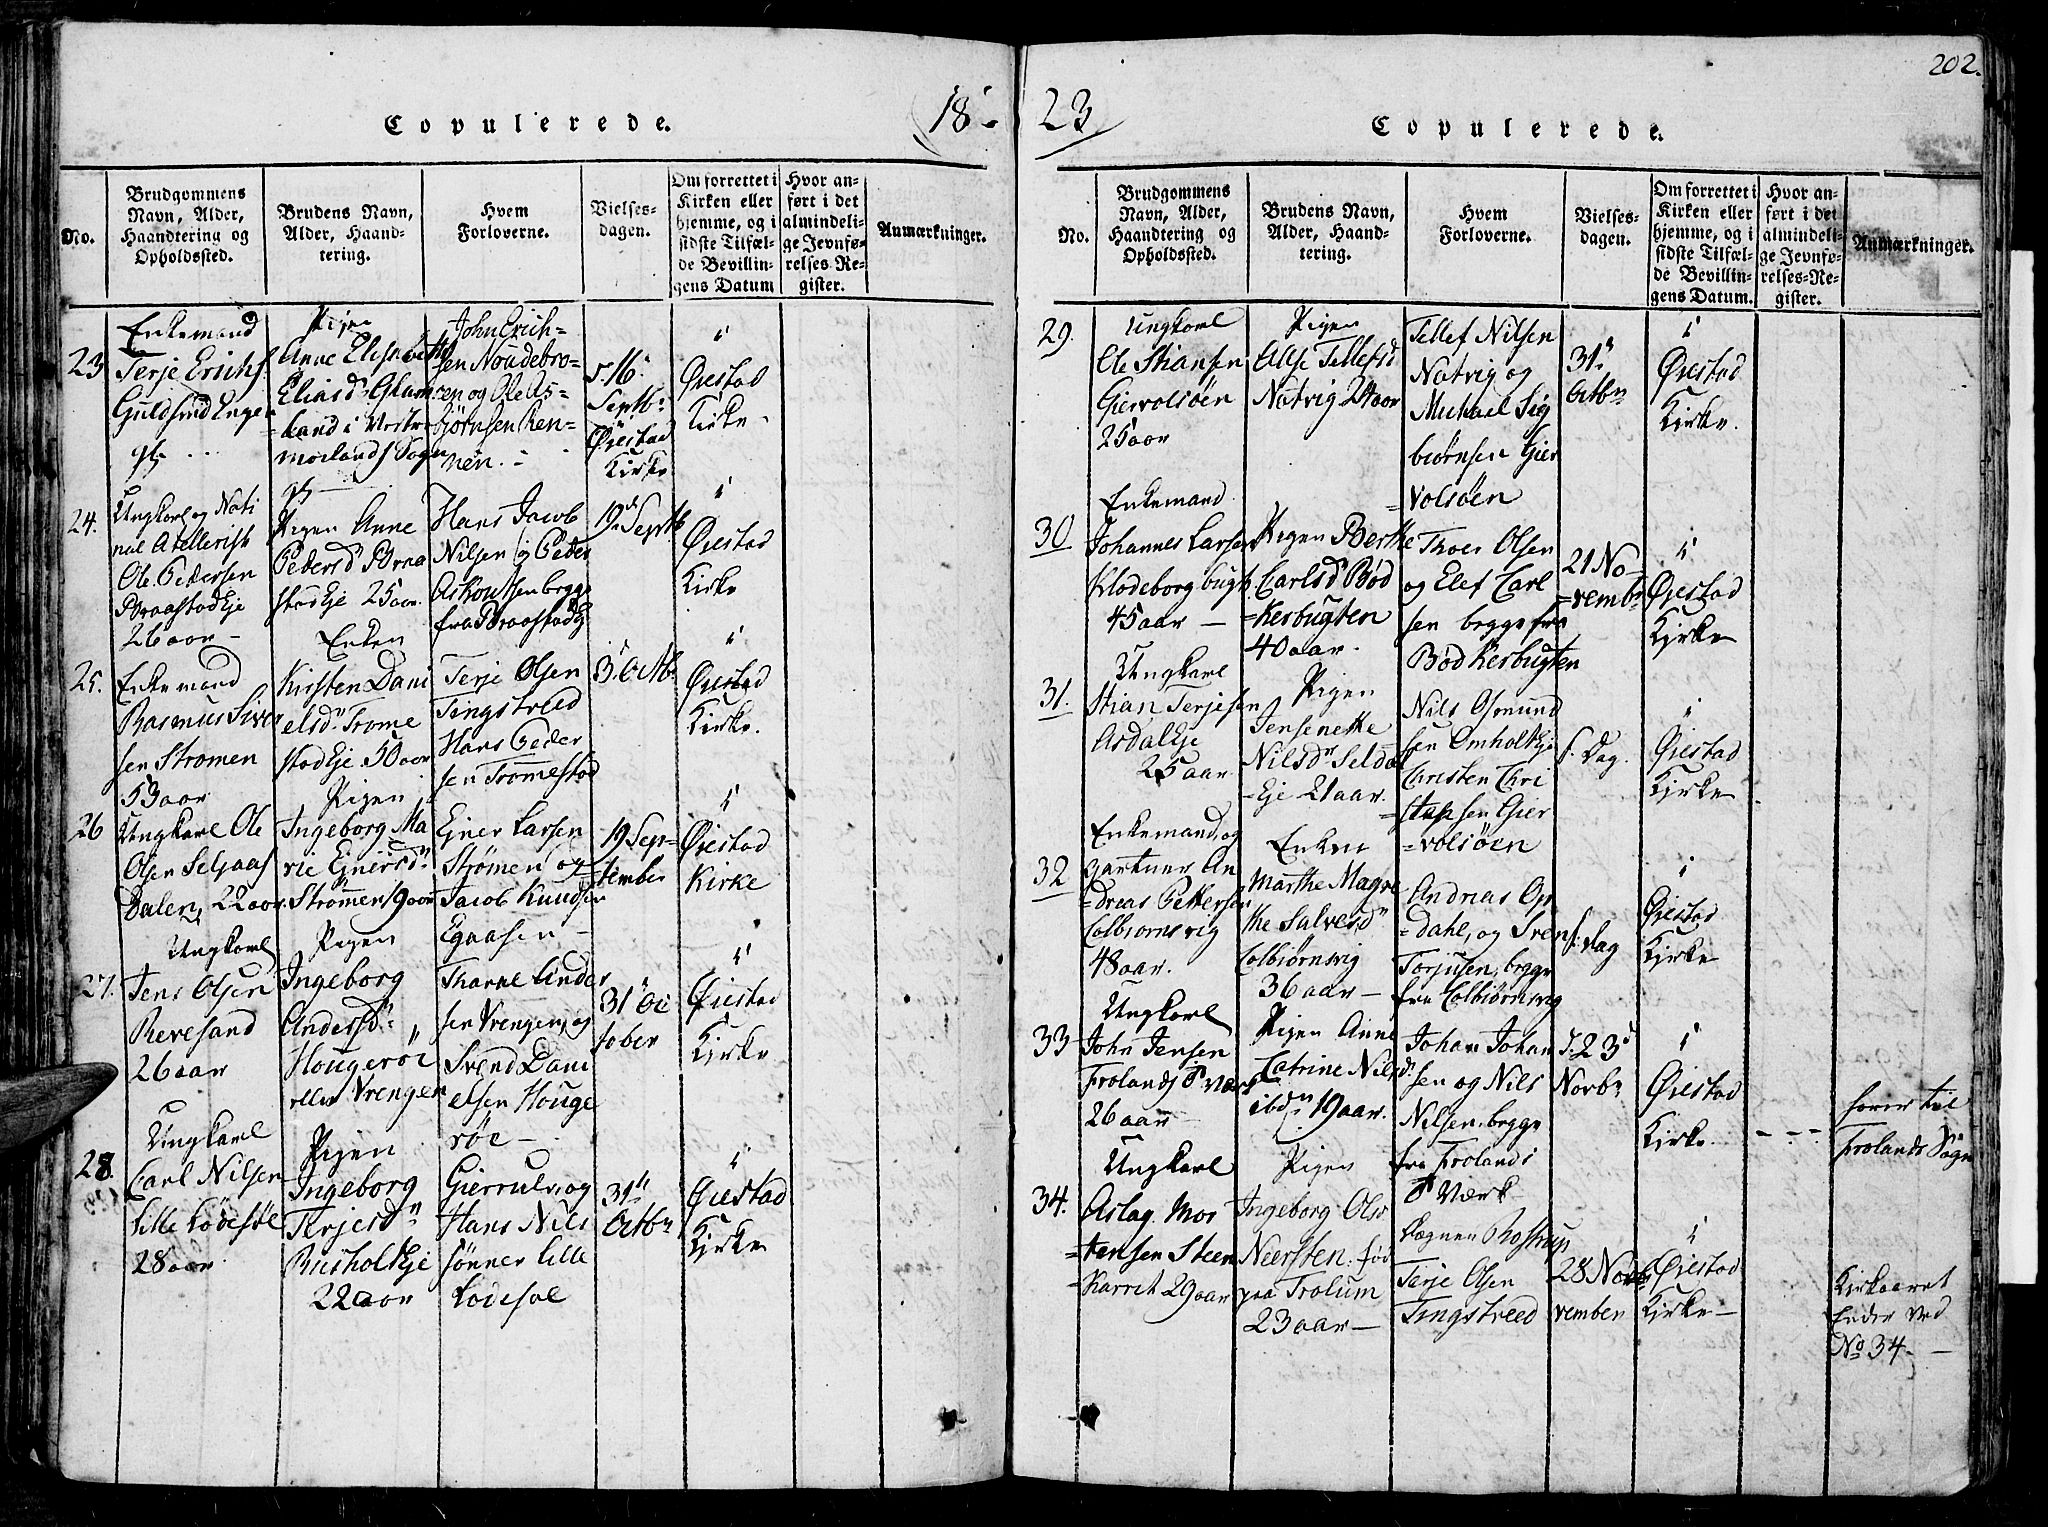 202.
Copulerede.
(18-
23)
Copulerede.
No.
Brudgommens
Navn, Alder,
Haandtering og
Opholdssted.
Brudens Navn,
Alder, Haand-
tering.
Hvem
Forloverne.
Vielses-
dagen.
Om forrettet i
Kirken eller
hjemme, og i
sidste Tilfæl-
de Bevillin-
gens Datum
Hvor an-
ført i det
almindeli-
ge Jevnfø-
relses-Re-
gister.
Anmærkninger.
23
Enkemand
Terje Erichs.
Guldsmed
Pigen
Anne Elisabeth
Eliasd. Glam-
land i Vestre
Moelands Sogn
John Erich-
sen Noudebro-
en og Ole As-
biörnsen Ren-
nen.
d. 16
Septbr
Øiestad
Kirke
i
Øiestad
Kirke
24.
Ungkarl og Nati
onal Artellerist
Ole Pedersen
BraastadEje
26 aar
Pigen Anne
Pedersd Braa
stadEje 25 aar.
Hans Jacob
Nilsen og Peder
Askoutsen begge
fra BraastadEj
19d Septb
i
Øiestad
Kirke
25.
Enkemand
Rasmus Siver
sen Strømen
53 aar
Enken
Kirsten Dani
elsd. Trome
stadEje 50 aar
Terje Olsen
Tingstveed
Hans Peder
sen Tromestad
3. Octbr
i
Øiestad
Kirke.
26
Ungkarl Ole
Olsen Seljaas
Dalen, 22 aar
Pigen
Ingeborg Ma
rie Ejnersd.
Strømen 19 aar
Ejner Larsen
Strømen og
Jacob Knudsen
Egaasen
19 Sep-
tember
i
Øiestad
Kirke
27.
Ungkarl
Jens Olsen
Revesand
26 aar
Pigen
Ingeborg
Andersd.
Hougerøe
eller Vrengen
Tharal Ander
sen Vrengen, og
Svend Dani
elsen Houge
røe
31 Oc
tober
i
Øiestad
Kirke
28.
Ungkarl
Carl Nilsen
Lille Lödesöl
28 aar.
Pigen
Ingeborg
Terjesd
RusholtEje
22 aar
Gierruls, og
Hans Nils
sønner Lille
Lödesöl
31te
Octbr
i
Øiestad
Kirke
No.
Brudgommens
Navn, Alder,
Haandtering og
Opholdssted.
Brudens Navn,
Alder, Haand-
tering.
Hvem
Forloverne.
Vielses-
dagen.
Om forrettet i
Kirken eller
hjemme, og i
sidste Tilfæl-
de Bevillin-
gens Datum.
Hvor an-
ført i det
almindeli-
ge Jevnfø-
relses-Re-
gister.
Anmærkninger.
29.
Ungkarl
Ole Stiansen
Giervolsöen
25 aar
Pigen
Else Tellefsd
Natvig 24 aar
Tellef Nilsen
Natvig og
Michael Sig
biørnsen Gier
=volsöen
31te
Octbr
i
Øiestad
Kirke.
30
Enkemand
Johannes Larsen
Klodeborg bugt
45 aar
Pigen Berthe
Carlsd Bød
=kerbugten
40 aar.
Thoer Olsen
og Elef Carl
sen begge fra
Bødkerbugten
21 No-
=vembr
i
Øiestad
Kirke
31.
Ungkarl
Stian Terjesen
AsdalEje
25 aar
Pigen
Jensenette
Nilsd Seldal
=Eje 21 aar.
Nils Osmund
sen OmholtEje
Christen Chri
=stophsen Gier
=volsöen
s. Dag.
i
Øiestad
Kirke
32
Enkemand, og
Gartner An
=dreas Pettersen
Colbiørnsvig
48 aar.
Enken
Marthe Magre
the Salvesd
Colbiørnsvig
36 aar
Andreas Op
=dahl, og Sven
Torjusen, begge
fra Colbiørnsvig
s. Dag
i
Øiestad
Kirke
33
Ungkarl
John Jensen
Frolands Værk
26 aar
Pigen Anne
Catrine Nilsd.
ibdm 19 aar.
Johan Johan
sen og Nils
Nilsen, begge
fra Frolands
Værk
d. 23d
Novbr
i
Øiestad
Kirke.
hører til
Frolands Sogn
34.
Ungkarl
Aslag. Mor
=tensen Steen
=karret 29 aar
Pigen
Ingeborg Olsd
Neersten. fød
paa Trolum
23 aar
Terje Olsen
Tingstveed
28 Nov
vember
i
Øiestad
Kirke
Kirkeaaret
Ender ved
No 34.